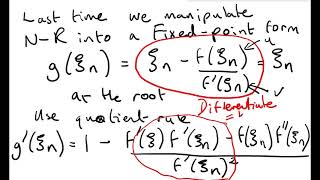 Last time we manipulate
N-R into a Fixed-point form
g(ξn) = ξn - f(ξn)/f'(ξn) = ξn
u
v
at the root
Differentiate
Use quotient rule
g'(ξn) = 1 - f'(ξ)f'(ξn) - f(ξn)f''(ξn)/f'(ξn)²